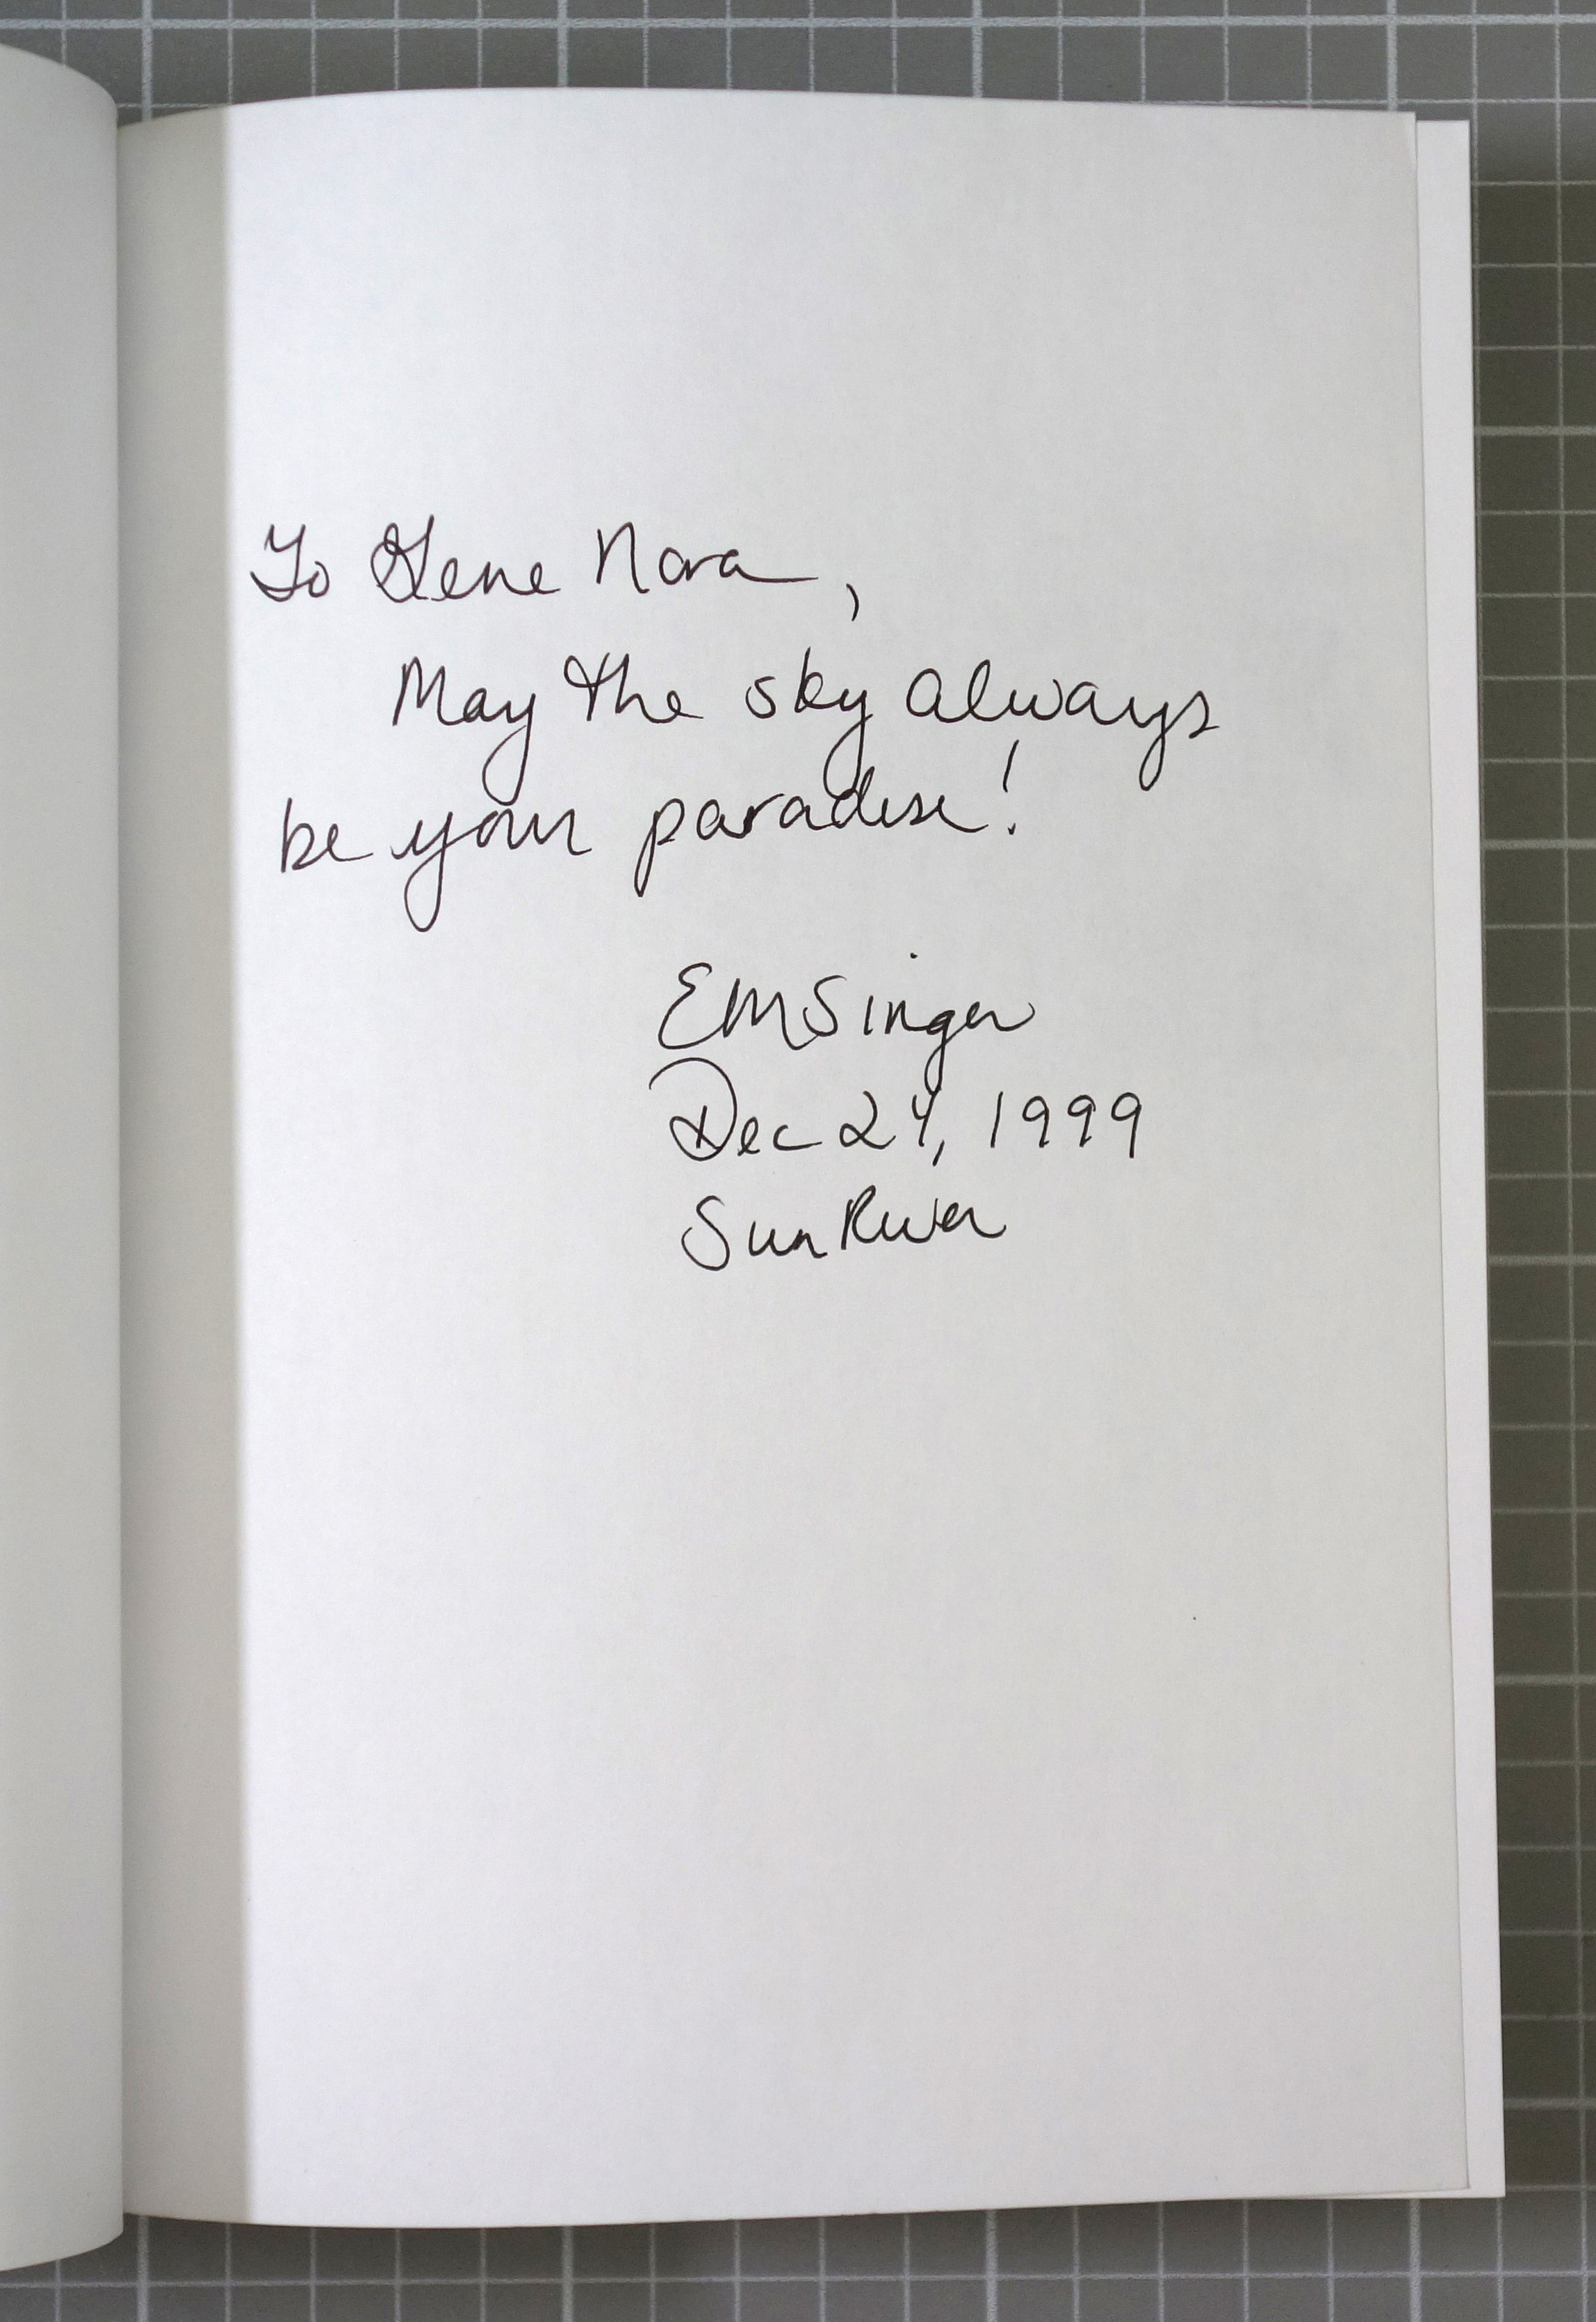 To Gene Nora,
May the sky always
be your paradise!
EMSinger
Dec 24, 1999
SunRiver